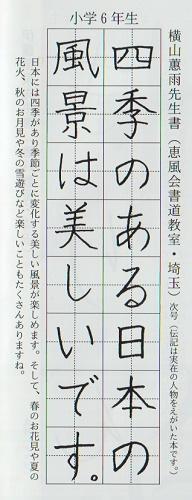 小学6年生
横山蕙雨先生書（恵風会書道教室・埼玉）次号（伝記は実在の人物をえがいた本です。）
四季のある日本の
風景は美しいです。
日本には四季があり季節ごとに変化する美しい風景が楽しめます。そして、春のお花見や夏の
花火、秋のお月見や冬の雪遊びなど楽しいこともたくさんありますね。